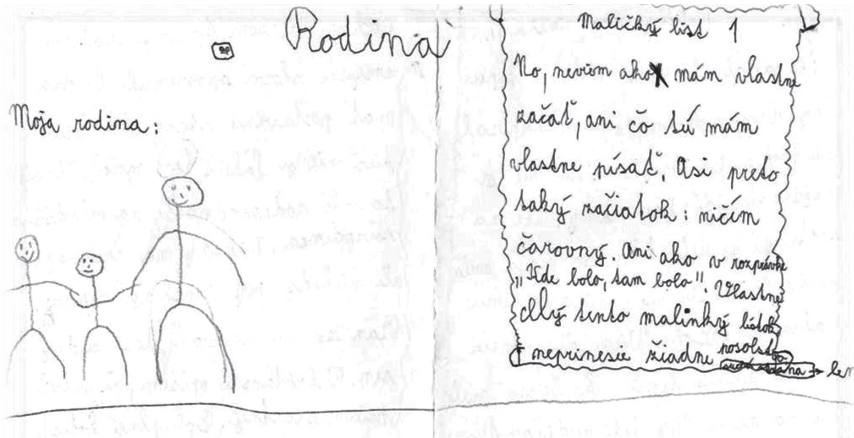 Rodina
Moja rodina:
Maličký list 1
No, neviem ako mám vlastne
začať, ani čo tú mám
vlastne písať. Asi preto
taký začiatok: ničím
čarovný. Ani ako v rozprávke
„Kde bolo, tam bolo". Vlastne
celý tento malinký lístok
neprinesie žiadne posolst